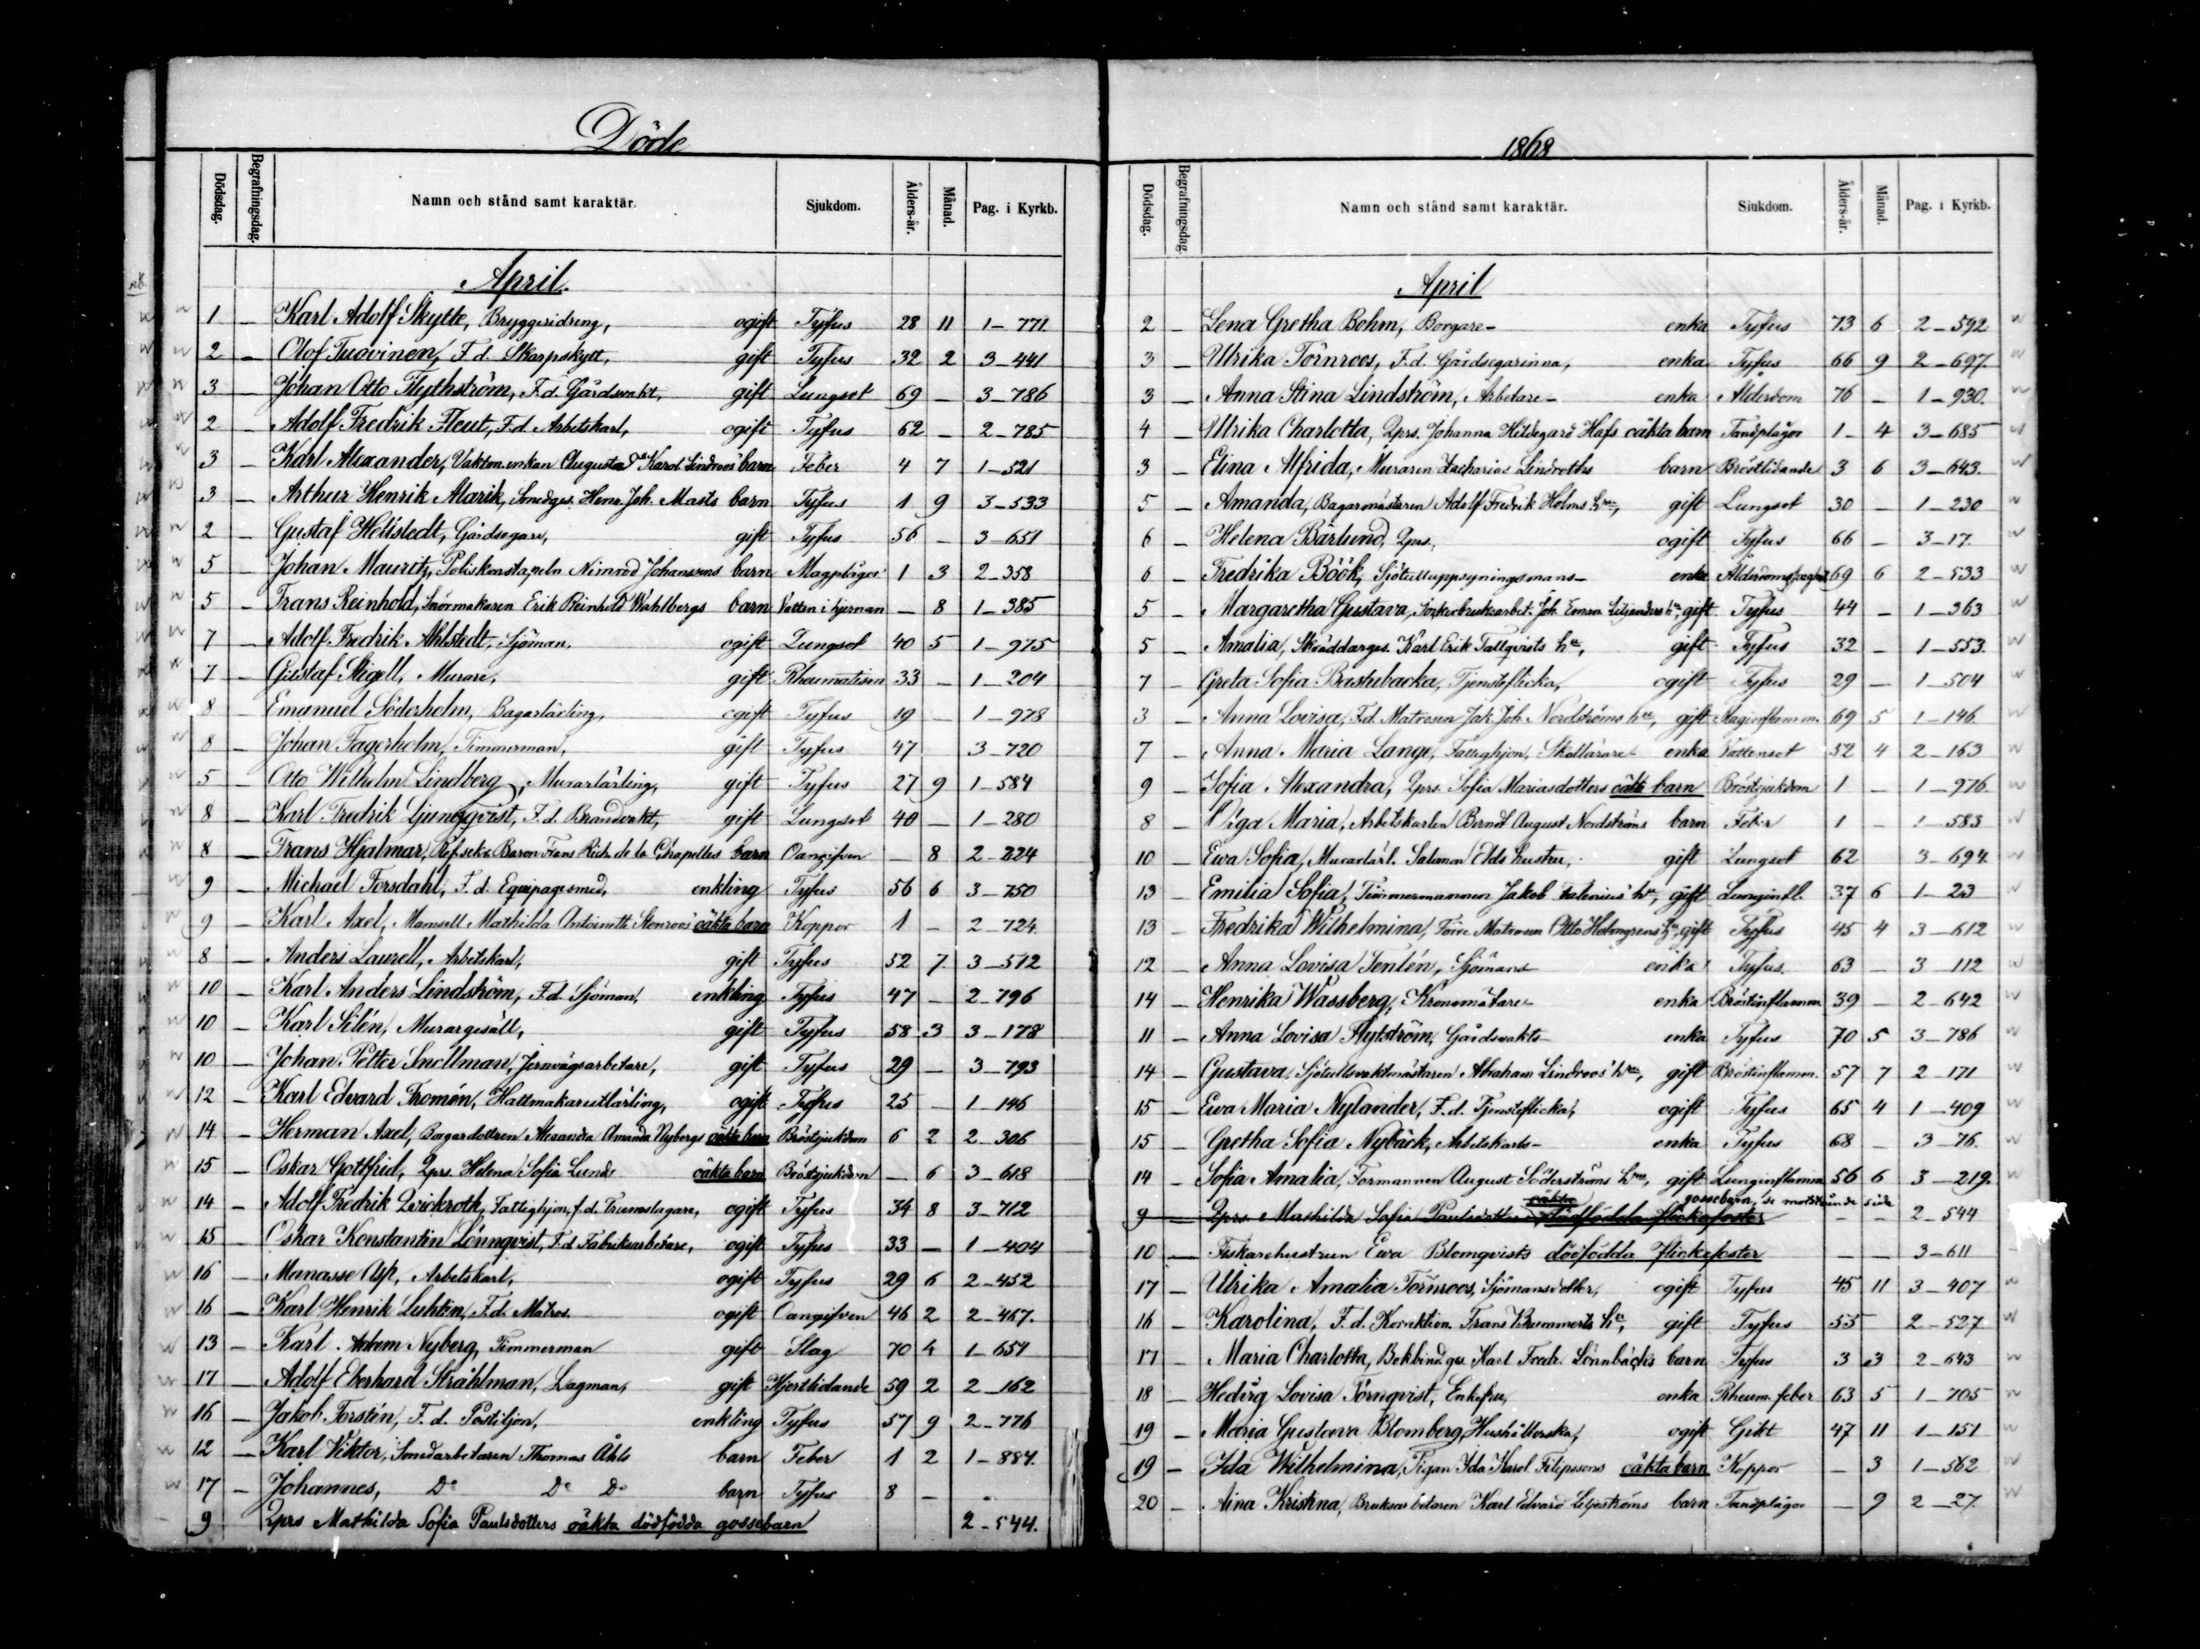 Döde
Dödsdag. Begrafningsdag. Namn och stånd samt karaktär. Sjukdom. Ålders-år. Månad. Pag. i Kyrkb.
April.
1 — Karl Adolf Skytte, Bryggeridreng, ogift Tyfus 28 11 1—771
2 — Olof Tuovinen, F.d. Skarpskytt, gift Tyfus 32 2 3—441
3 — Johan Otto Flythström, F.d. Gårdsvakt, gift Lungsot 69 — 3—786
2 — Adolf Fredrik Fleut, F.d. Arbetskarl, ogift Tyfus 62 — 2—785
3 — Karl Alexander, Vaktm.enkan Augusta Karol. Lindroos' barn Feber 4 7 1—521
3 — Arthur Henrik Alarik, Smedges. Henr. Joh. Masts barn Tyfus 1 9 3—533
2 — Gustaf Hellstedt, Gårdsegare, gift Tyfus 56 — 3—651
5 — Johan Mauritz, Poliskonstapeln Nimrod Johanssons barn Magplågor 1 3 2—358
5 — Frans Reinhold, Snörmakaren Erik Reinhold Wahlbergs barn Vatten i hjernan — 8 1—385
7 — Adolf Fredrik Ahlstedt, Sjöman, ogift Lungsot 40 5 1—975
7 — Gustaf Stigell, Murare, gift Rheumatism 33 — 1—204
8 — Emanuel Söderholm, Bagarlärling, ogift Tyfus 19 — 1—978
8 — Johan Fagerholm, Timmerman, gift Tyfus 47 3—720
5 — Otto Wilhelm Lindberg, Murarlärling, gift Tyfus 27 9 1—584
8 — Karl Fredrik Ljungqvist, F.d. Brandvakt, gift Lungsot 40 — 1—280
8 — Frans Hjalmar, Ref.sekr. Baron Frans Rich. de la Chapelles barn Oangifven — 8 2—224
9 — Michael Forsdahl, F.d. Equipagesmed, enkling Tyfus 56 6 3—750
9 — Karl Axel, Mamsell Mathilda Antoinette Stenroos' oäkta barn Koppor 1 — 2—724
8 — Anders Laurell, Arbetskarl, gift Tyfus 52 7 3—512
10 — Karl Anders Lindström, F.d. Sjöman, enkling Tyfus 47 — 2—796
10 — Karl Silén, Murargesäll, gift Tyfus 58 3 3—178
10 — Johan Petter Snellman, Jernvägsarbetare, gift Tyfus 29 — 3—793
12 — Karl Edvard Fromén, Hattmakarelärling, ogift Tyfus 25 — 1—146
14 — Herman Axel, Borgardottren Alexandra Amanda Nybergs oäkta barn Bröstsjukdom 6 2 2—306
15 — Oskar Gottfrid, Qprs. Helena Sofia Lunds oäkta barn Bröstsjukdom — 6 3—618
14 — Adolf Fredrik Qvickroth, Fattighjon, f.d. Trumslagare, ogift Tyfus 34 8 3—712
15 — Oskar Konstantin Lönnqvist, F.d. Fabriksarbetare, ogift Tyfus 33 — 1—404
16 — Manasse Asp, Arbetskarl, ogift Tyfus 29 6 2—452
16 — Karl Henrik Luhtin, F.d. Matros. ogift Oangifven 46 2 2—467.
13 — Karl Adam Nyberg, Timmerman gift Slag 70 4 1—654
17 — Adolf Eberhard Stråhlman, Lagman, gift Hjertlidande 59 2 2—162
16 — Jakob Forstén, F.d. Postiljon, enkling Tyfus 57 9 2—776
12 — Karl Viktor, Smidarbetaren Thomas Åhls barn Feber 1 2 1—884.
17 — Johannes, Do Do Do barn Tyfus 8 —
9 Qprs Mathilda Sofia Paulsdotters oäkta dödfödda gossebarn 2—544.
1868
Dödsdag. Begrafningsdag. Namn och stånd samt karaktär. Sjukdom. Ålders-år. Månad. Pag. i Kyrkb.
April
2 — Lena Gretha Bohm, Borgare- enka Tyfus 73 6 2—592
3 — Ulrika Törnroos, F.d. Gårdsegarinna, enka Tyfus 66 9 2—697.
3 — Anna Stina Lindström, Arbetare- enka Ålderdom 76 — 1—930.
4 — Ulrika Charlotta, Qprs. Johanna Hildegard Hafs oäkta barn Tandplågor 1 4 3—685
3 — Elina Alfrida, Muraren Zacharias Lindroths barn Bröstlidande 3 6 3—643.
5 — Amanda, Bagarmästaren Adolf Fredrik Holms hu, gift Lungsot 30 — 1—230
6 — Helena Bärlund, Qprs, ogift Tyfus 66 — 3—17.
6 — Fredrika Böök, Sjötulluppsyningsmans- enka 69 6 2—533
5 — Margaretha Gustava, Sockerbruksarbet. Joh. Eman. Liljanders hu, gift Tyfus 44 — 1—363
5 — Amalia, Skräddarges. Karl Erik Tallqvists hu, gift Tyfus 32 — 1—553.
7 — Greta Sofia Bastubacka, Tjensteflicka, ogift Tyfus 29 — 1—504
3 — Anna Lovisa, F.d. Matrosen Jak. Joh. Nordströms hu, gift 69 5 1—146
7 — Anna Maria Lange, Fattighjon, enka Vattensot 52 4 2—163
9 — Sofia Alexandra, Qprs. Sofia Mariasdotters oäkta barn Bröstsjukdom 1 — 1—976.
8 — Olga Maria, Arbetskarlen Berndt August Nordströms barn Feber 1 — 1—583
10 — Ewa Sofia, Murarlärl. Salomon Elds hustru, gift Lungsot 62 3—694.
13 — Emilia Sofia, Timmermannen Jakob hu, gift Lunginfl. 37 6 1—23
13 — Fredrika Wilhelmina, Matrosen Otto Holmgrens hu, gift Tyfus 45 4 3—612
12 — Anna Lovisa Tentén, Sjömans- enka Tyfus. 63 — 3—112
14 — Henrika Wassberg, Kronomätare- enka Bröstinflamm. 39 — 2—642
11 — Anna Lovisa Flytström, Gårdsvakts- enka Tyfus 70 5 3—786
14 — Gustava, Sjötullsvaktmästaren Abraham Lindroos' hu, gift Bröstinflamm. 57 7 2—171
15 — Ewa Maria Nylander, F.d. Tjensteflicka, ogift Tyfus 65 4 1—409
15 — Gretha Sofia Nybäck, Arbetskarls- enka Tyfus 68 — 3—76.
14 — Sofia Amalia, Formannen August Söderströms hu, gift Lunginflamm. 56 6 3—219.
oäkta gossebarn, se motstående sida
9 — Qprs. Mathilda Sofia Paulsdotters dödfödda flickefoster — — 2—544
10 — Fiskarehustrun Ewa Blomqvists dödfödda flickefoster — — 3—611
17 — Ulrika Amalia Törnroos, Sjömansdotter, ogift Tyfus 45 11 3—407
16 — Karolina, F.d. Korrektion. Frans Krummerts hu, gift Tyfus 55 2—527
17 — Maria Charlotta, Bokbind.ges. Karl Fredr. Lönnbäcks barn Tyfus 3 3 2—643
18 — Hedvig Lovisa Törnqvist, Enkefru, enka Rheum. feber 63 5 1—705
19 — Maria Gustava Blomberg, Hushållerska, ogift Gikt 47 11 1—151
19 — Ida Wilhelmina, Pigan Ida Karol. Filipssons oäkta barn Koppor — 3 1—562
20 — Aina Kristina, Bruksarbetaren Karl Edvard Liljeströms barn Tandplågor — 9 2—27.